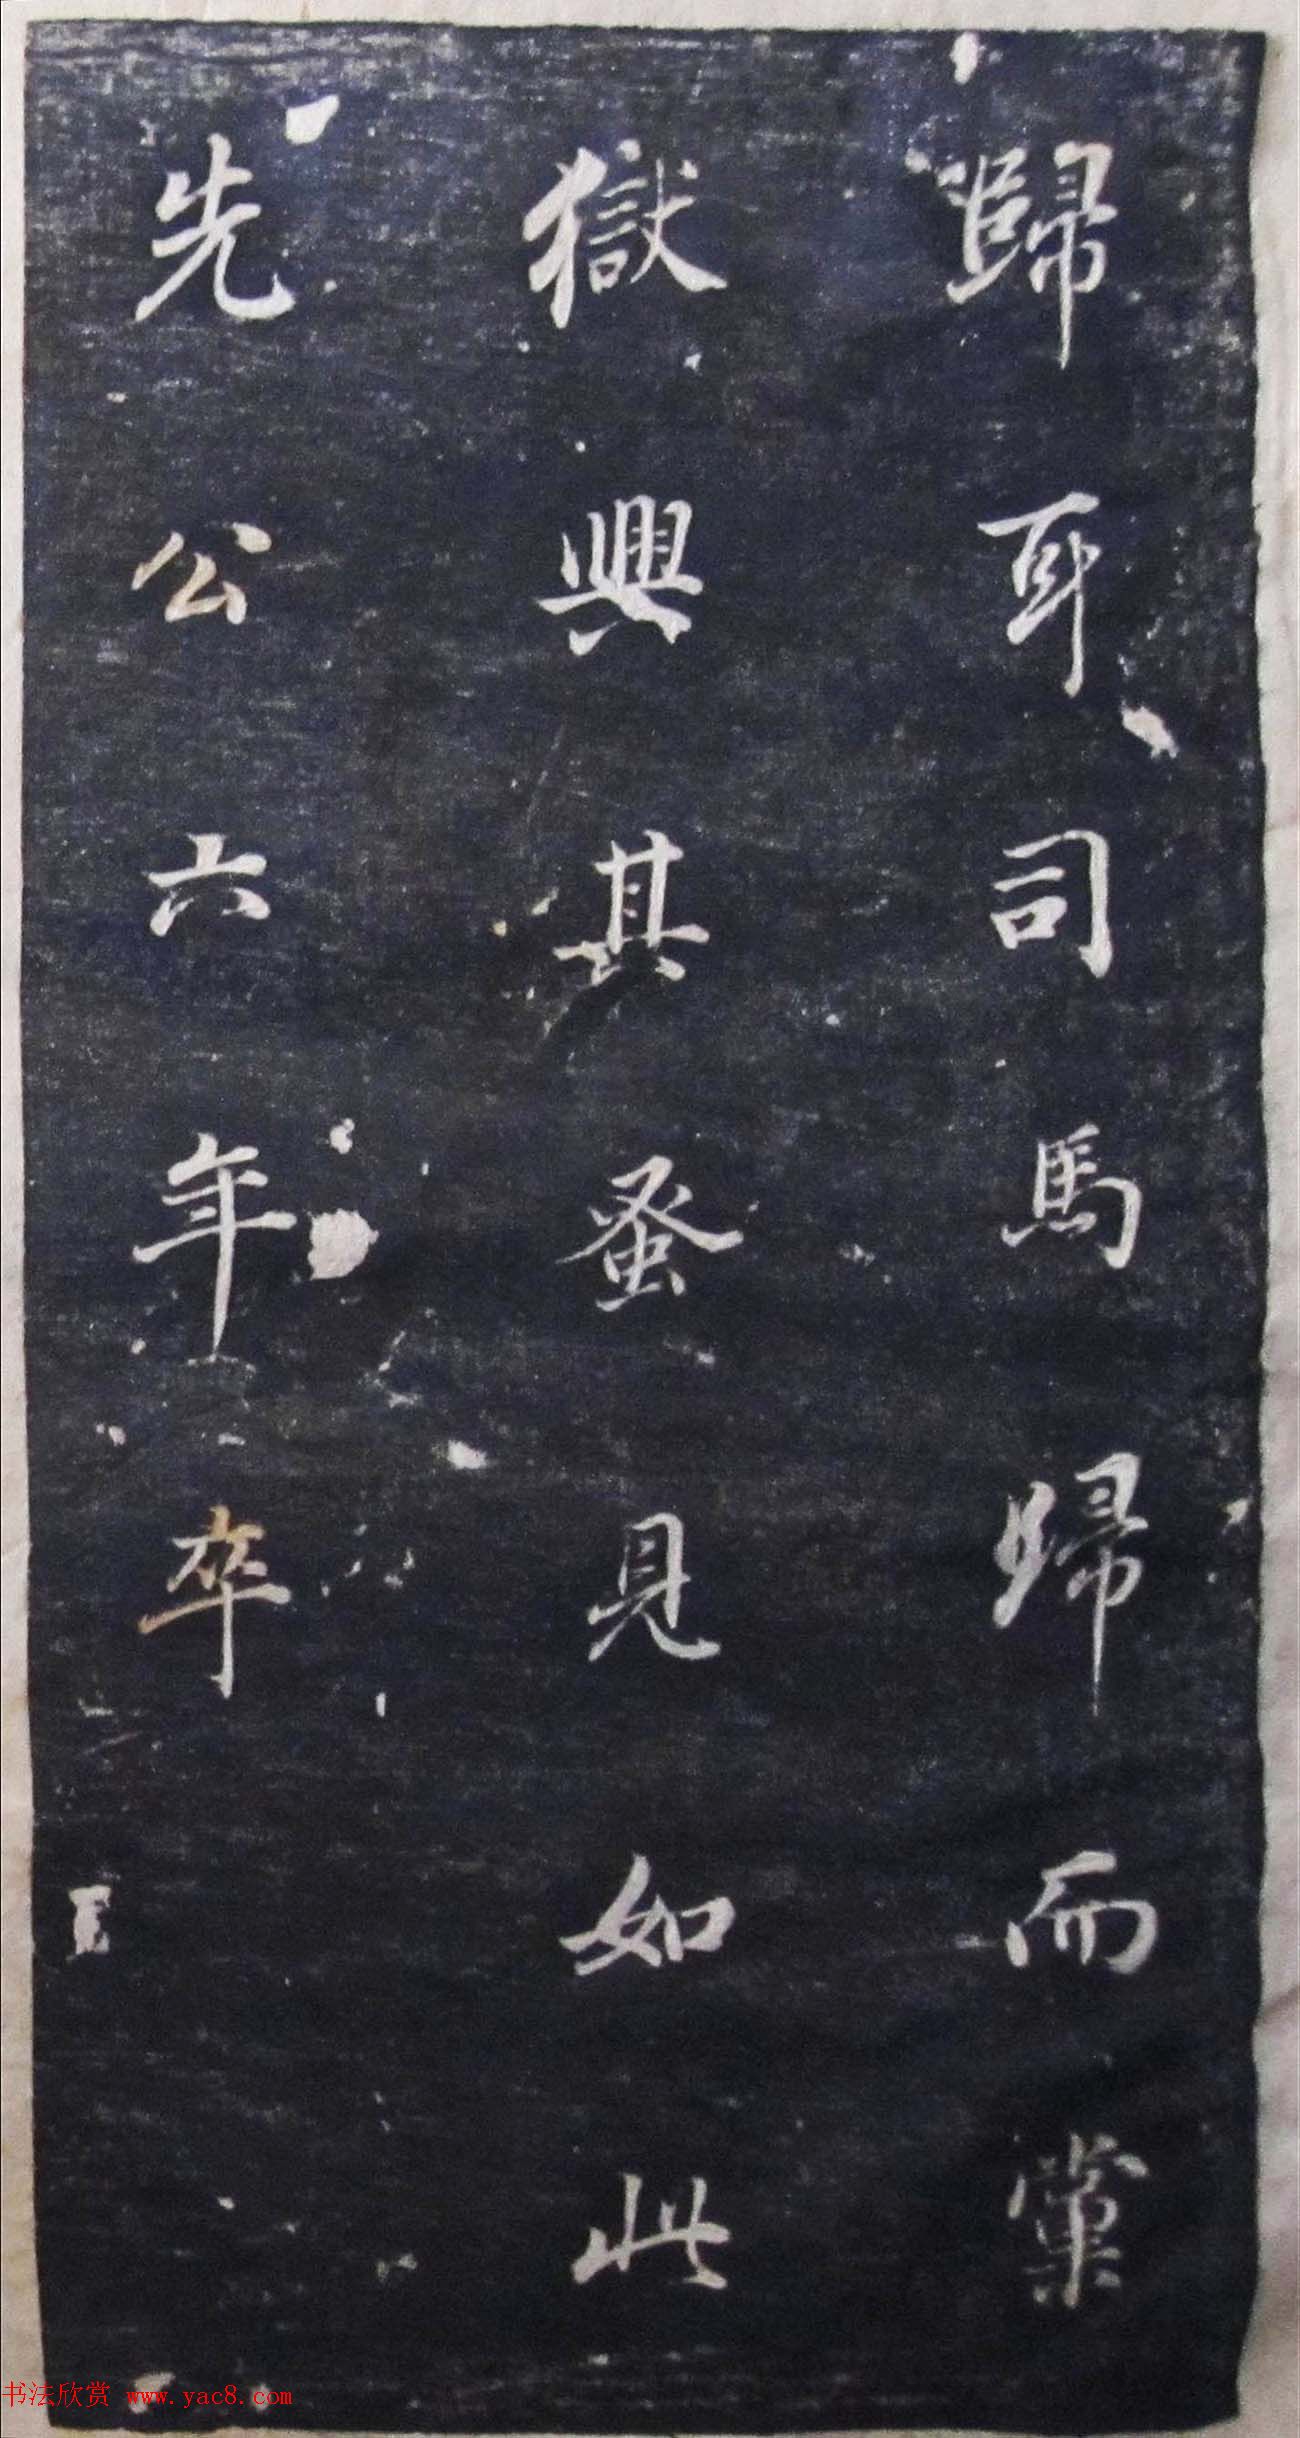 歸耳司馬歸而黨
獄興其蚤見如此
先公六年卒
书法欣赏 www.yac8.com